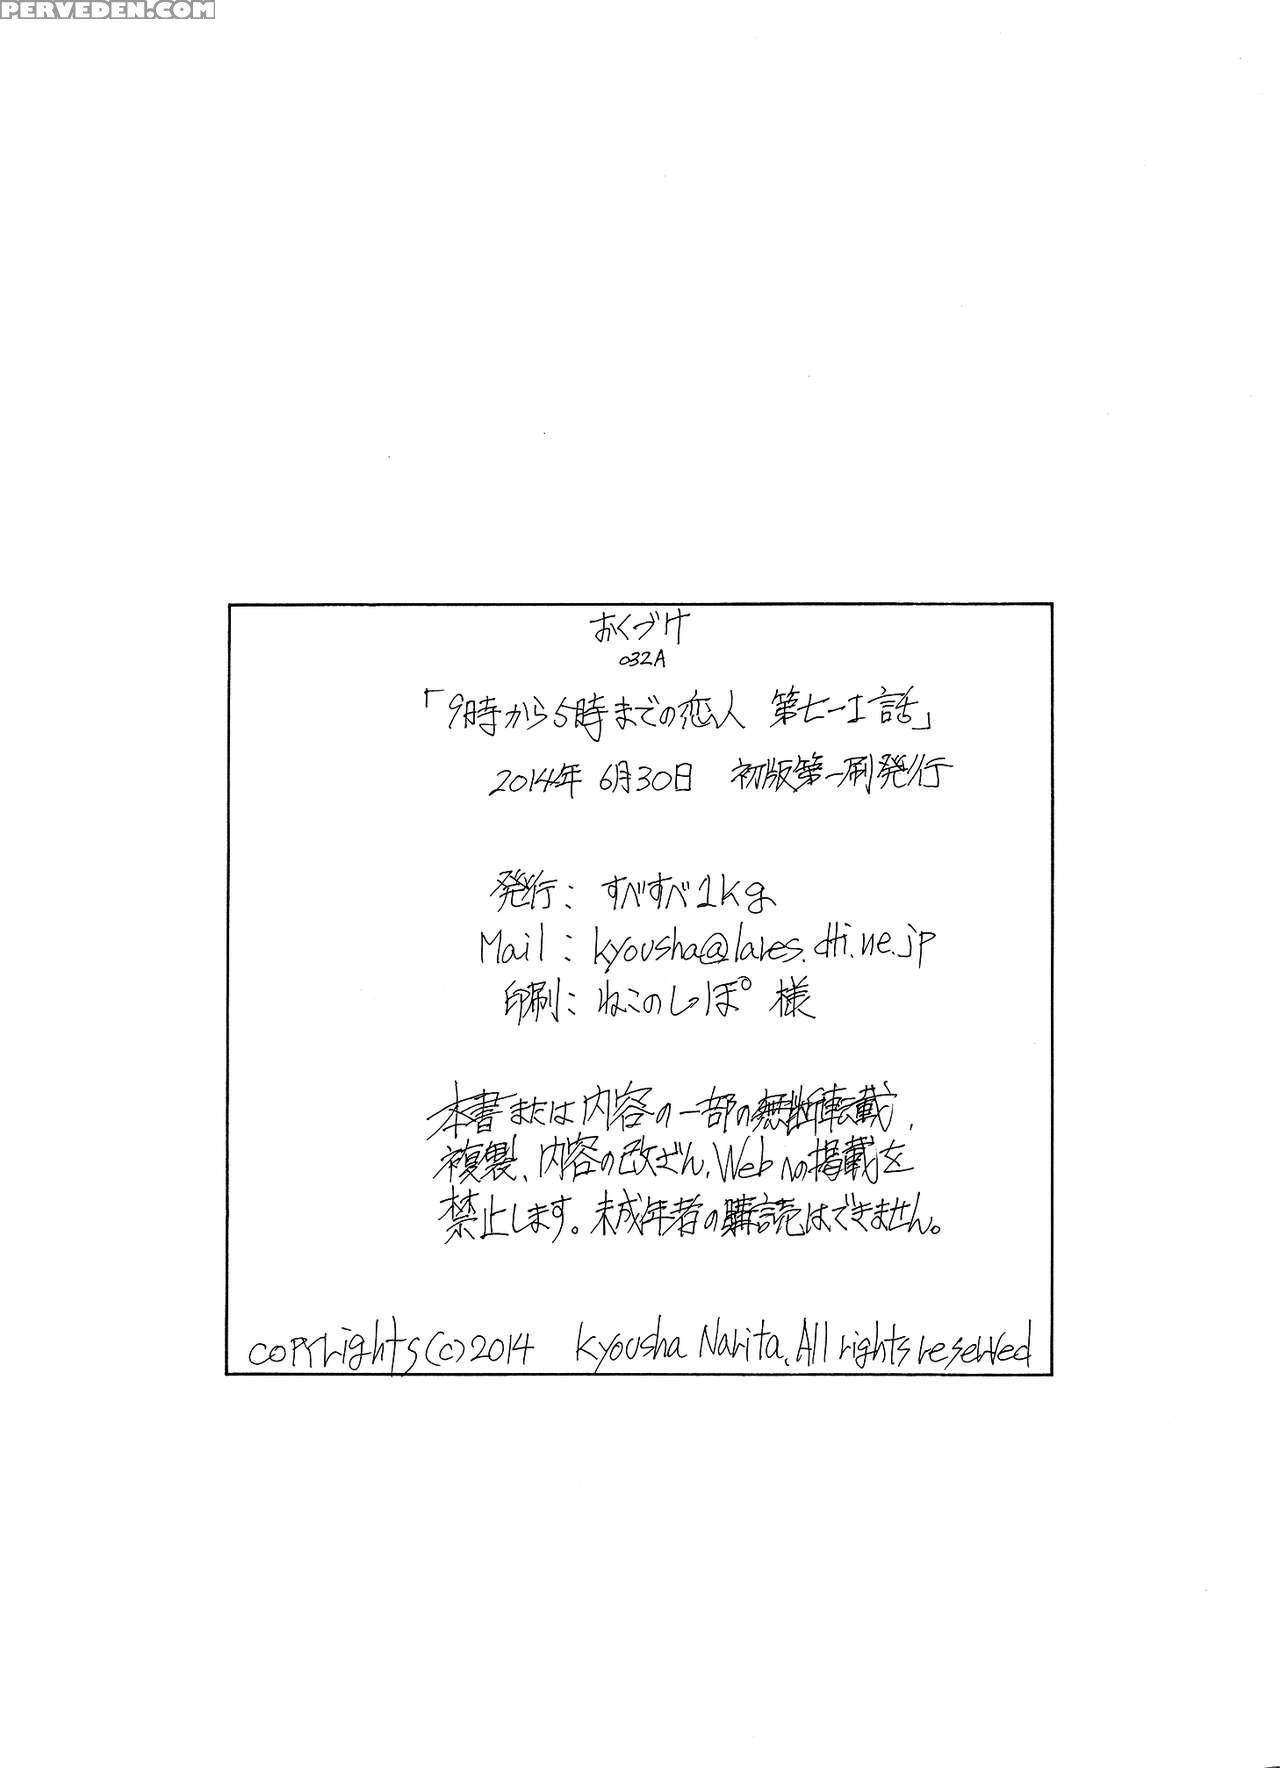 PERVEDEN.COM
おくづけ
032A
「9時から5時までの恋人 第七ーI話」
2014年 6月30日 初版第一刷発行
発行: すべすべ1kg
Mail: kyousha@lares.dti.ne.jp
印刷: ねこのしっぽ 様
本書または内容の一部の無断転載、
複製、内容の改ざん、Webへの掲載を
禁止します。未成年者の購読はできません。
copyrights(c)2014 Kyousha Narita, All rights reserved